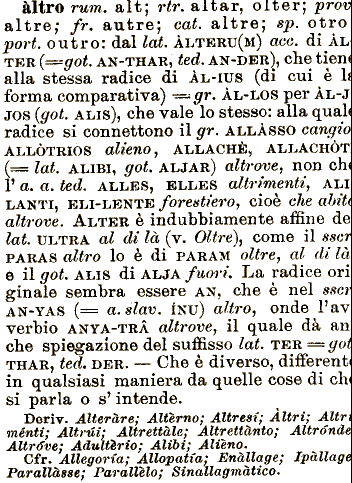 àltro rum. alt; rtr. altar, olter; prov
altre; fr. autre; cat. altre; sp. otro
port. outro: dal lat. ÀLTERU(M) acc. di ÀL
TER (=got. AN-THAR, ted. AN-DER), che tien
alla stessa radice di ÀL-IUS (di cui è la
forma comparativa) = gr. ÀL-LOS per ÀL-J
JOS (got. ALIS), che vale lo stesso: alla qual
radice si connettono il gr. ALLÀSSO cangio
ALLÒTRIOS alieno, ALLACHÊ, ALLACHÒT
(= lat. ALIBI, got. ALJAR) altrove, non che
l' a. a. ted. ALLES, ELLES altrimenti, ALI
LANTI, ELI-LENTE forestiero, cioè che abit
altrove. ALTER è indubbiamente affine de
lat. ULTRA al di là (v. Oltre), come il sscr
PARAS altro lo è di PARAM oltre, al di là
e il got. ALIS di ALJA fuori. La radice ori
ginale sembra essere AN, che è nel sscr
AN-YAS (= a. slav. ÍNU) altro, onde l'av
verbio ANYA-TRÂ altrove, il quale dà an
che spiegazione del suffisso lat. TER = got
THAR, ted. DER. — Che è diverso, different
in qualsiasi maniera da quelle cose di ch
si parla o s' intende.
Deriv. Alteràre; Altèrno; Altresí; Àltri; Altri
ménti; Altrúi; Altrettàle; Altrettànto; Altrónde
Altróve; Adultèrio; Àlibi; Alièno.
Cfr. Allegoría; Allopatía; Enàllage; Ipàllage
Parallàsse; Parallèlo; Sinallagmàtico.